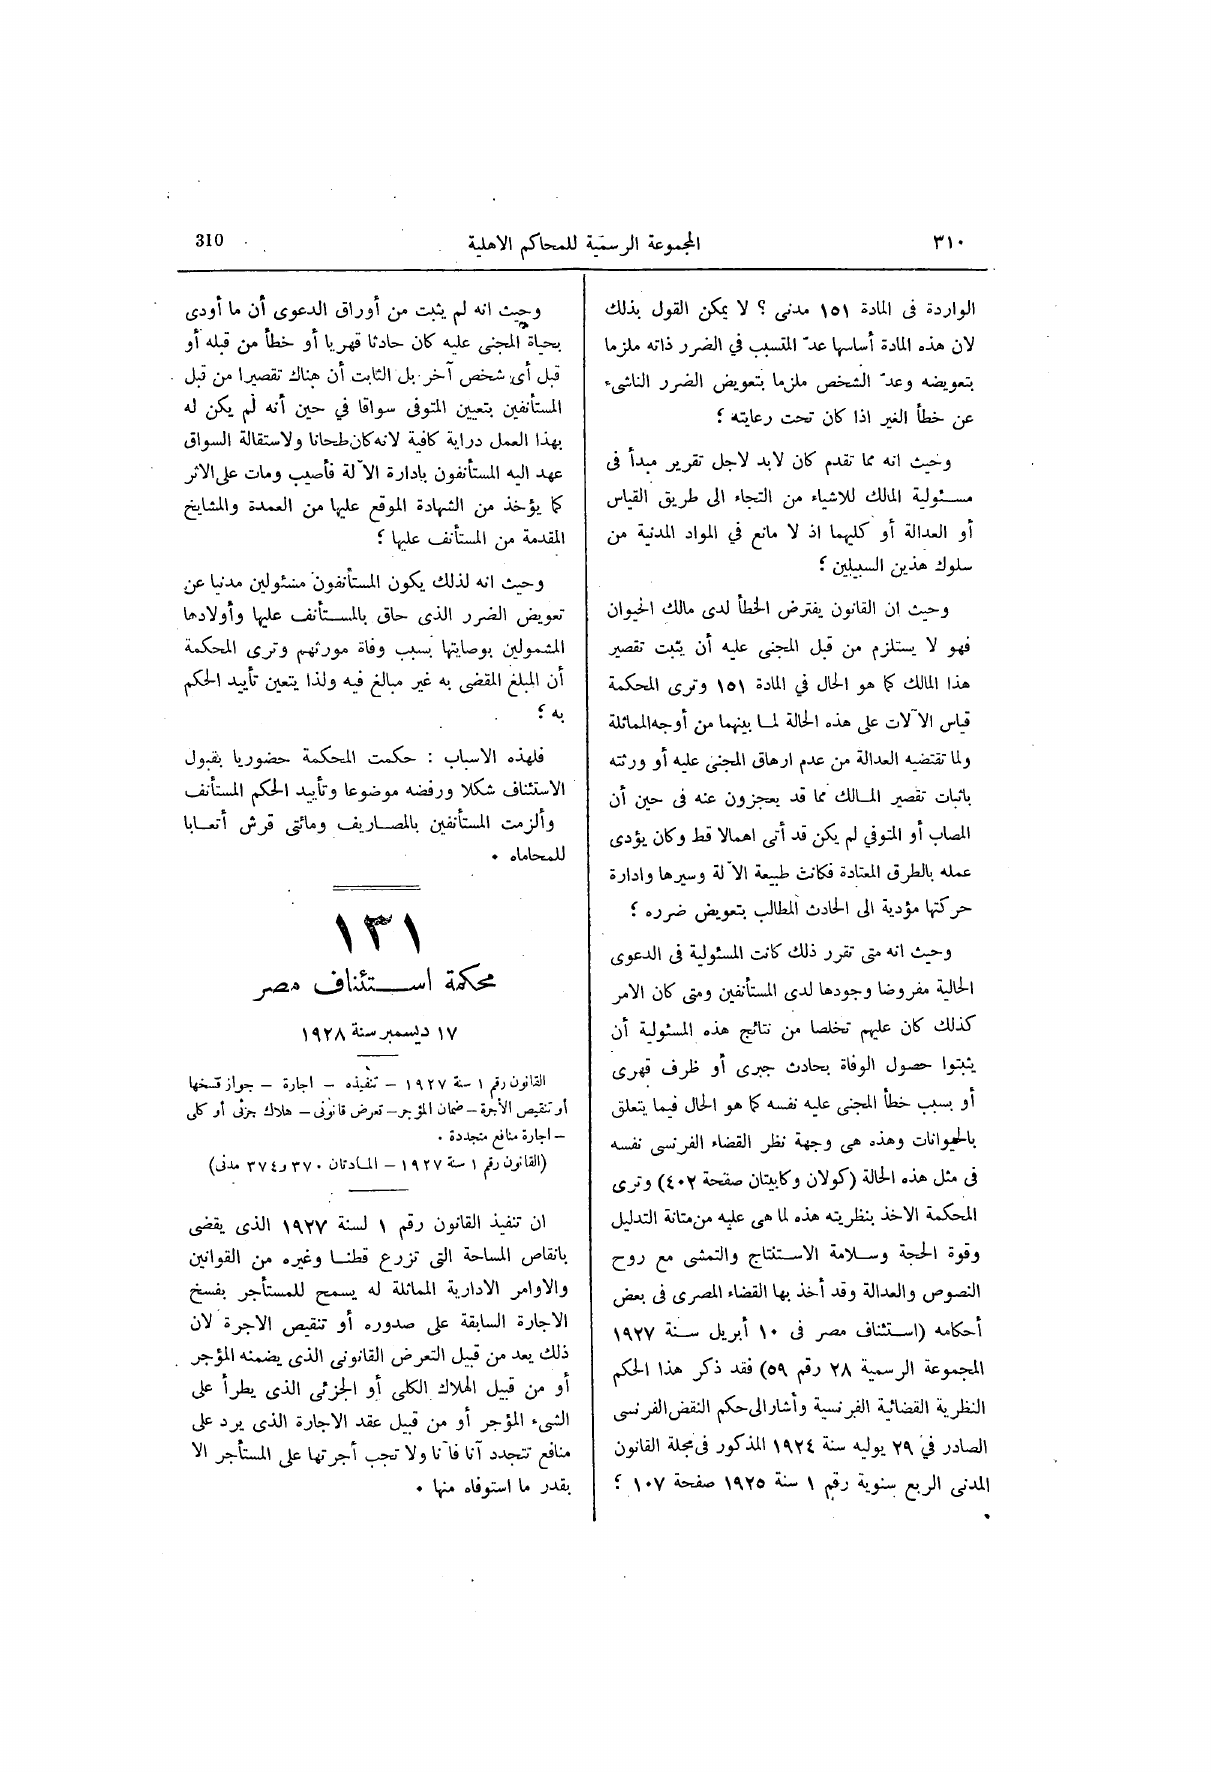 ٣١٠
المجموعة الرسمية للمحاكم الاهلية
310
الواردة فى المادة ١٥١ مدنى ؟ لا يمكن القول بذلك
لان هذه المادة أساسها عدّ المتسبب في الضرر ذاته ملزما
بتعويضه وعدّ الشخص ملزما بتعويض الضرر الناشىء
عن خطأ الغير اذا كان تحت رعايته ؛
وحيث انه مما تقدم كان لابد لاجل تقرير مبدأ فى
مسئولية المالك للاشياء من التجاء الى طريق القياس
أو العدالة أو كليهما اذ لا مانع في المواد المدنية من
سلوك هذين السبيلين ؛
وحيث ان القانون يفترض الخطأ لدى مالك الحيوان
فهو لا يستلزم من قبل المجنى عليه أن يثبت تقصير
هذا المالك كما هو الحال في المادة ١٥١ وترى المحكمة
قياس الآلات على هذه الحالة لما بينهما من أوجه المماثلة
ولما تقتضيه العدالة من عدم ارهاق المجنى عليه أو ورثته
باثبات تقصير المالك مما قد يعجزون عنه فى حين أن
المصاب أو المتوفي لم يكن قد أتى اهمالا قط وكان يؤدى
عمله بالطرق المعتادة فكانت طبيعة الآلة وسيرها وادارة
حركتها مؤدية الى الحادث المطالب بتعويض ضرره ؛
وحيث انه متى تقرر ذلك كانت المسئولية فى الدعوى
الحالية مفروضا وجودها لدى المستأنفين ومتى كان الامر
كذلك كان عليهم تخلصا من نتائج هذه المسئولية أن
يثبتوا حصول الوفاة بحادث جبرى أو ظرف قهرى
أو بسبب خطأ المجنى عليه نفسه كما هو الحال فيما يتعلق
بالحيوانات وهذه هى وجهة نظر القضاء الفرنسى نفسه
فى مثل هذه الحالة (كولان وكابيتان صفحة ٤٠٢) وترى
المحكمة الاخذ بنظريته هذه لما هى عليه من متانة التدليل
وقوة الحجة وسلامة الاستنتاج والتمشى مع روح
النصوص والعدالة وقد أخذ بها القضاء المصرى فى بعض
أحكامه (استئناف مصر فى ١٠ أبريل سنة ١٩٢٧
المجموعة الرسمية ٢٨ رقم ٥٩) فقد ذكر هذا الحكم
النظرية القضائية الفرنسية وأشار الى حكم النقض الفرنسى
الصادر في ٢٩ يوليه سنة ١٩٢٤ المذكور فى مجلة القانون
المدنى الربع سنوية رقم ١ سنة ١٩٢٥ صفحة ١٠٧ ؛
وحيث انه لم يثبت من أوراق الدعوى أن ما أودى
بحياة المجنى عليه كان حادثا قهريا أو خطأ من قبله أو
قبل أى شخص آخر بل الثابت أن هناك تقصيرا من قبل
المستأنفين بتعيين المتوفى سواقا في حين أنه لم يكن له
بهذا العمل دراية كافية لانه كان طحانا ولاستقالة السواق
عهد اليه المستأنفون بادارة الآلة فأصيب ومات على الاثر
كما يؤخذ من الشهادة الموقع عليها من العمدة والمشايخ
المقدمة من المستأنف عليها ؛
وحيث انه لذلك يكون المستأنفون مسئولين مدنيا عن
تعويض الضرر الذى حاق بالمستأنف عليها وأولادها
المشمولين بوصايتها بسبب وفاة مورثهم وترى المحكمة
أن المبلغ المقضى به غير مبالغ فيه ولذا يتعين تأييد الحكم
به ؛
فلهذه الاسباب : حكمت المحكمة حضوريا بقبول
الاستئناف شكلا ورفضه موضوعا وتأييد الحكم المستأنف
وألزمت المستأنفين بالمصاريف ومائتى قرش أتعابا
للمحاماه ٠
١٣١
محكمة استئناف مصر
١٧ ديسمبر سنة ١٩٢٨
القانون رقم ١ سنة ١٩٢٧ – تنفيذه – اجارة – جواز فسخها
أو تنقيص الأجرة – ضمان المؤجر – تعرض قانونى – هلاك جزئى أو كلى
– اجارة منافع متجددة ٠
(القانون رقم ١ سنة ١٩٢٧ – المادتان ٣٧٠ و ٣٧٤ مدنى)
ان تنفيذ القانون رقم ١ لسنة ١٩٢٧ الذى يقضى
بانقاص المساحة التى تزرع قطنا وغيره من القوانين
والاوامر الادارية المماثلة له يسمح للمستأجر بفسخ
الاجارة السابقة على صدوره أو تنقيص الاجرة لان
ذلك يعد من قبيل التعرض القانونى الذى يضمنه المؤجر
أو من قبيل الهلاك الكلى أو الجزئى الذى يطرأ على
الشىء المؤجر أو من قبيل عقد الاجارة الذى يرد على
منافع تتجدد آنا فآنا ولا تجب أجرتها على المستأجر الا
بقدر ما استوفاه منها ٠